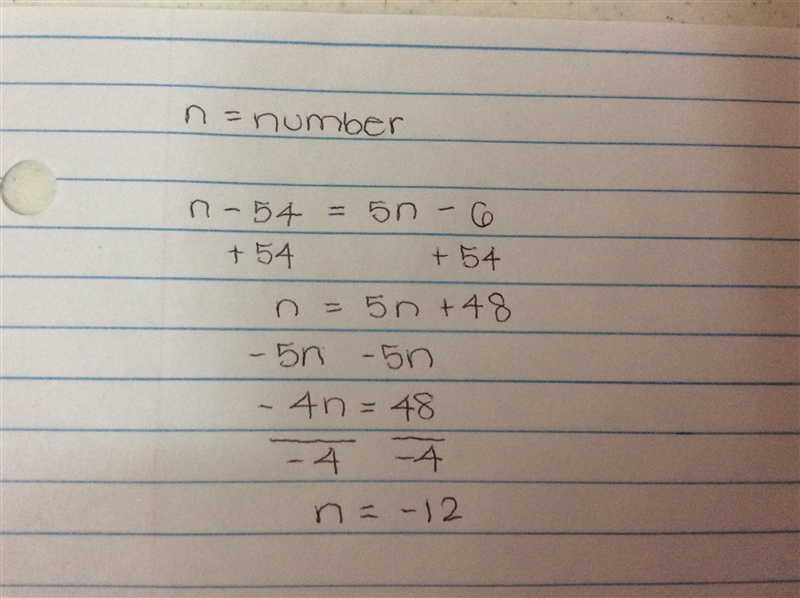 n = number
n - 54 = 5n - 6
+ 54 + 54
n = 5n + 48
- 5n - 5n
- 4n = 48
-4 -4
n = -12